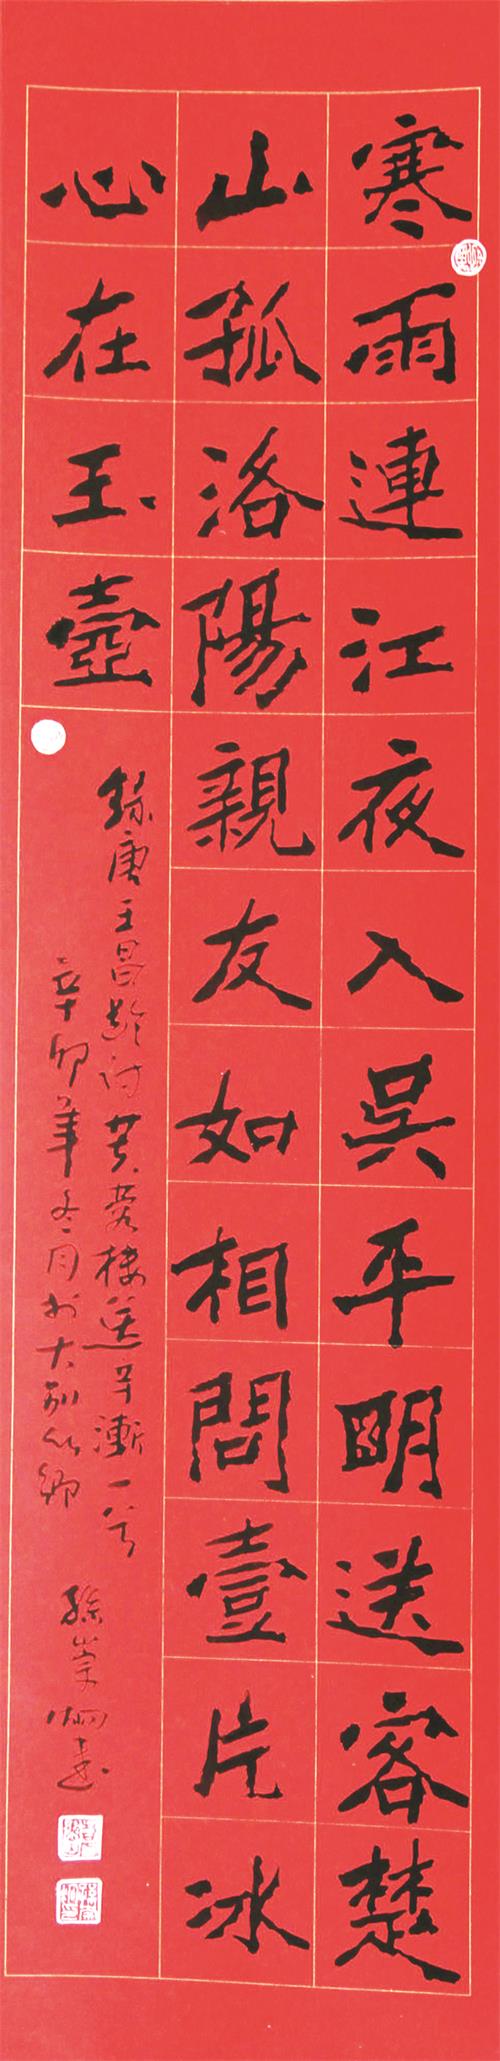 寒雨連江夜入吳平明送客楚
山孤洛陽親友如相問壹片冰
心在玉壺
錄唐王昌齡詩芙蓉樓送辛漸一首
辛卯年冬月於大別鄉
孫崇炯書